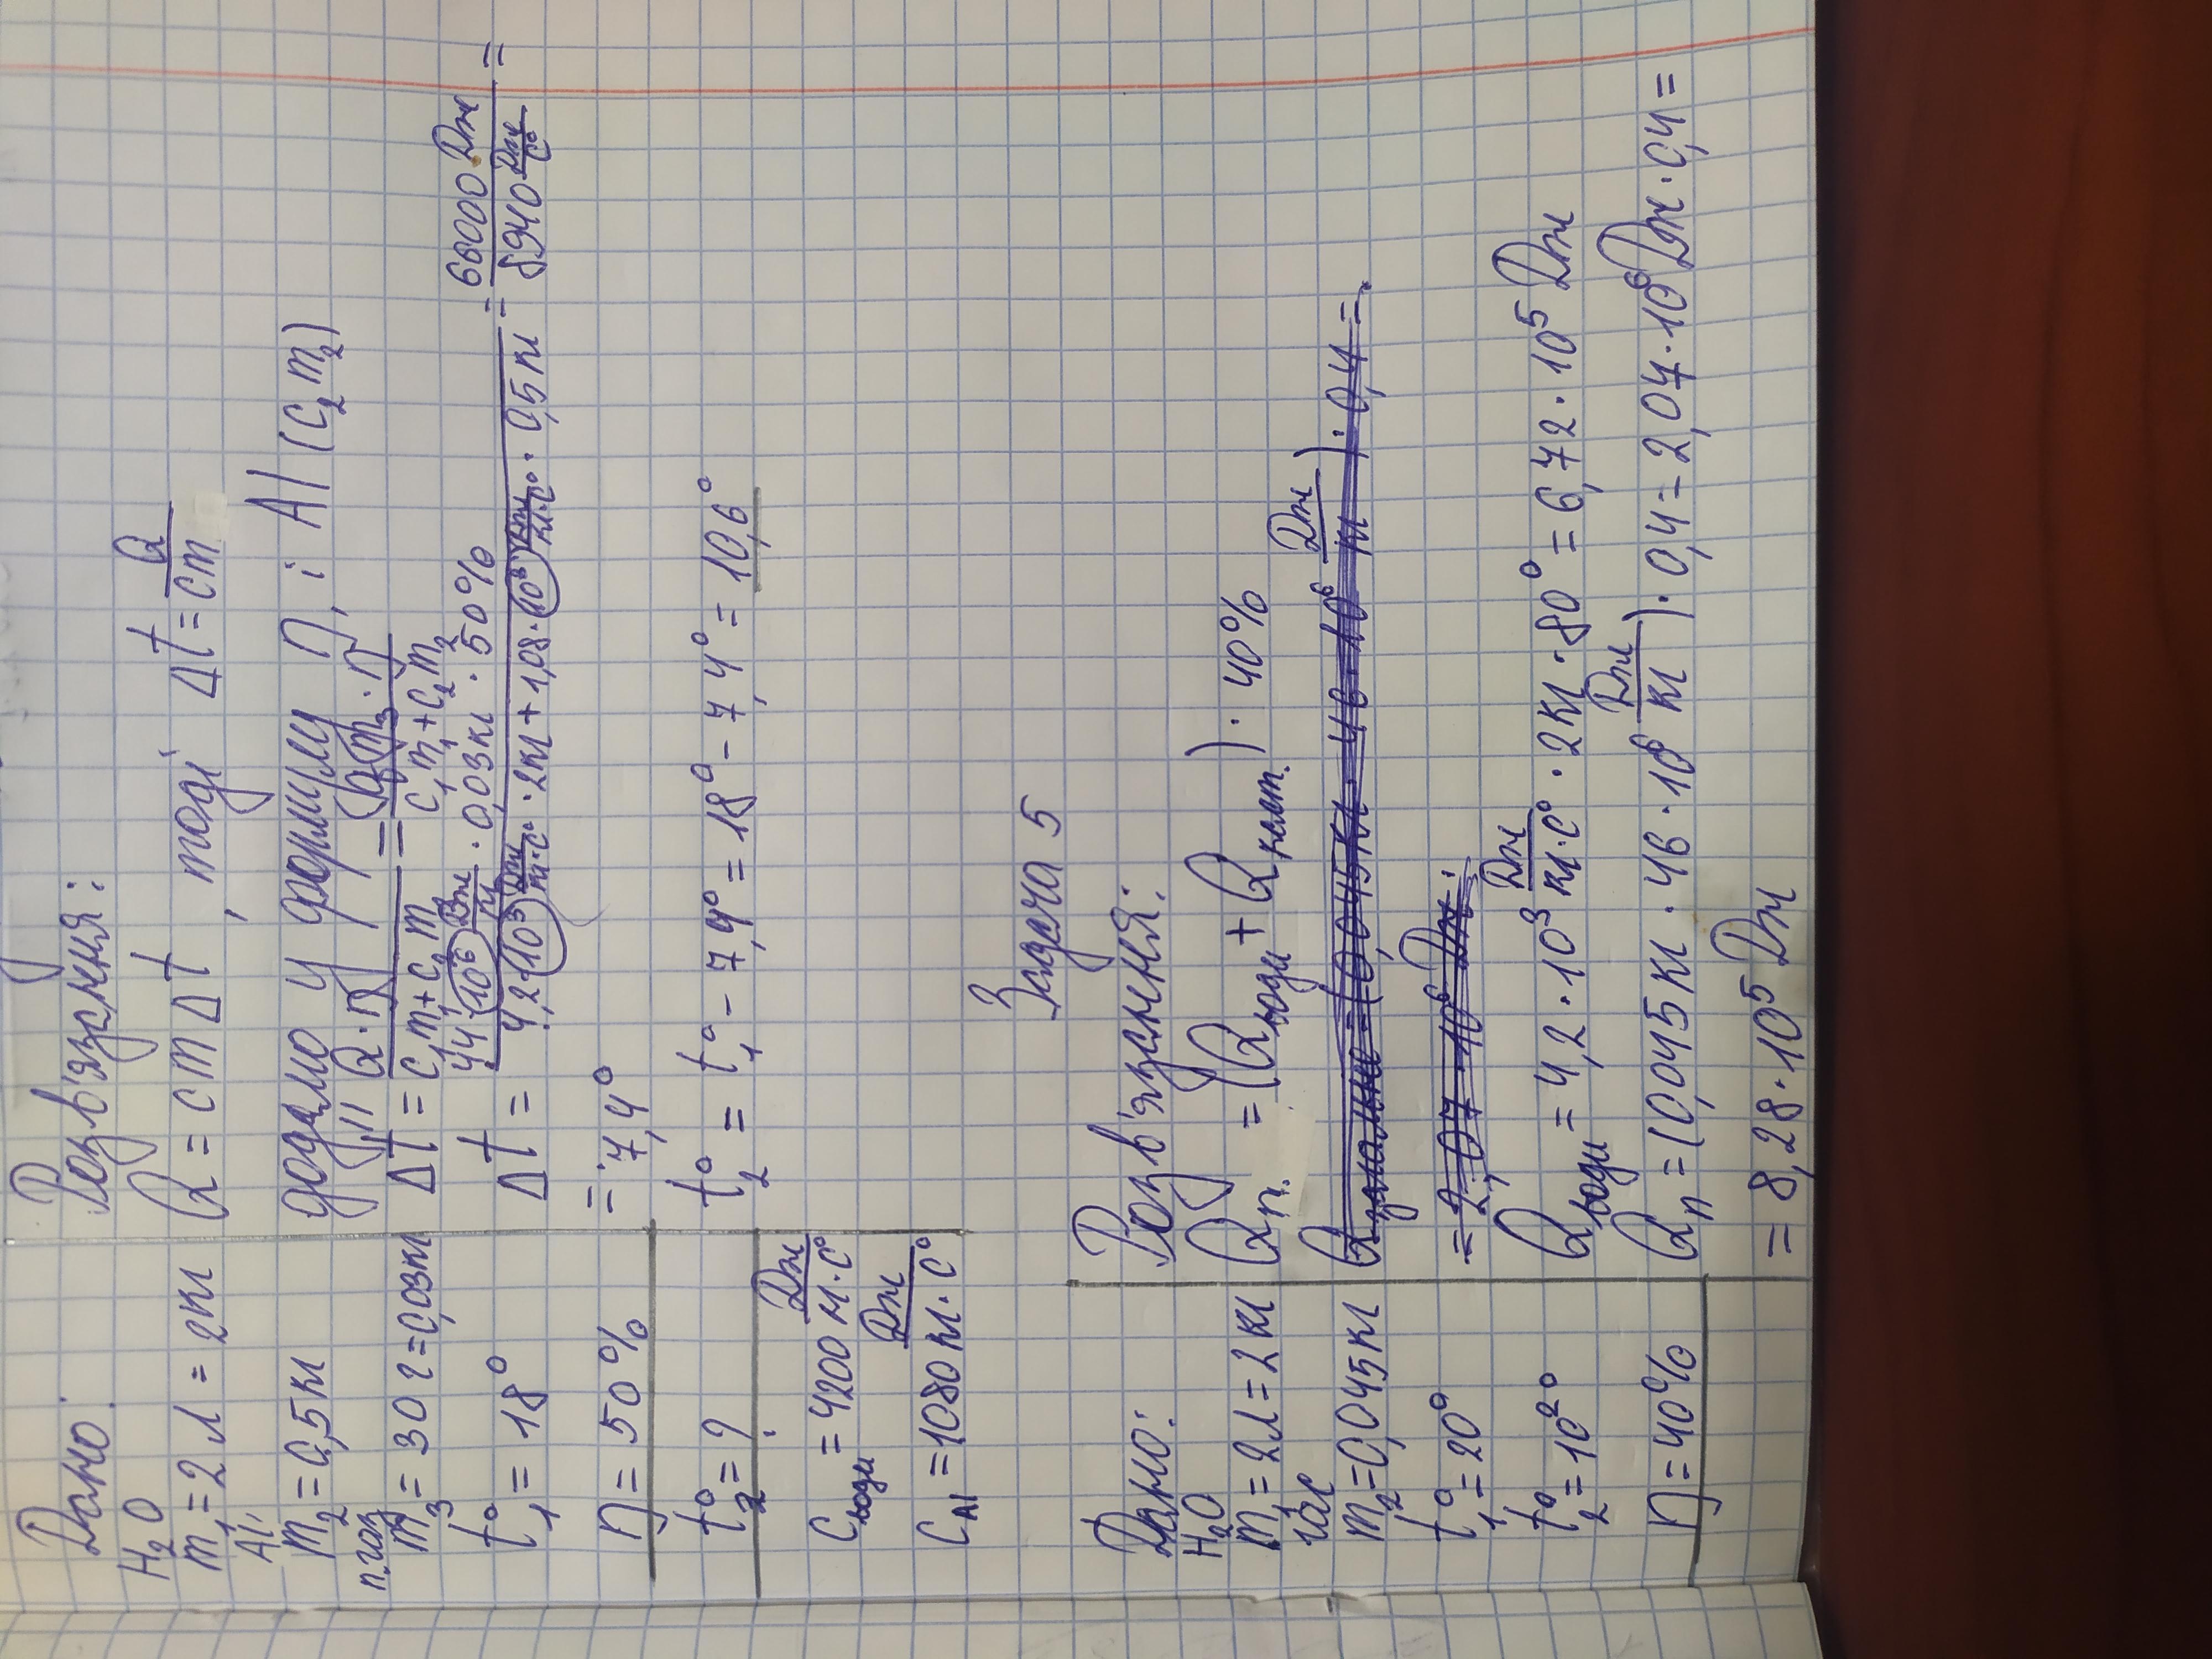 Дано:
H₂O
m₁ = 2 л = 2 кг
Al,
m₂ = 0,5 кг
п. газ
m₃ = 30 г = 0,03кг
t₁° = 18°
η = 50%
t₂° = ?
Cводи = 4200 Дж/кг·C°
C Al = 1080 Дж/кг·C°
Розв'язення:
Q = cmΔt, тоді Δt = Q/cm
додамо у формулу η, і Al (c₂m₂)
Δt = Q·η/c₁m₁+c₂m₂ = (q·m₃)·η/c₁m₁+c₂m₂
Δt = 44·10⁶ Дж/кг · 0,03кг · 50% / 4,2·10³ Дж/кг·C° · 2кг + 1,08·10³ Дж/кг·C° · 0,5кг = 66000 Дж / 8940 Дж/C° =
= 7,4°
t₂° = t₁° - 7,4° = 18° - 7,4° = 10,6°
Задача 5
Дано:
H₂O
m₁ = 2л = 2 кг
газ
m₂ = 0,045кг
t₁° = 20°
t₂° = 10²°
η = 40%
Розв'язення:
Qп. = (Qводи + Qпалт.) · 40%
= (0,045кг · 46·10⁶ Дж/кг) · 0,4 =
= 2,07·10⁶ Дж.
Qводи = 4,2·10³ Дж/кг·C° · 2кг · 80° = 6,72·10⁵ Дж
Qп = (0,045кг · 46·10⁶ Дж/кг) · 0,4 = 2,07·10⁶ Дж · 0,4 =
= 8,28·10⁵ Дж